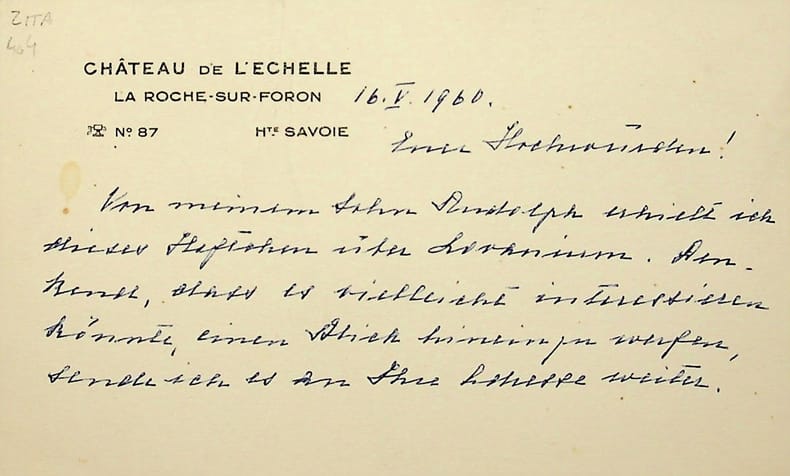 ZITA
404
CHÂTEAU DE L'ECHELLE
LA ROCHE-SUR-FORON 16.V.1960.
Nº 87 HTE SAVOIE
Euer Hochwürden!
Von meinem Sohn Rudolph erhielt ich
dieses Heftchen über Lovanium. Den-
kend, dass es vielleicht interessieren
könnte, einen Blick hineinzu werfen,
sende ich es an Ihre Adresse weiter.